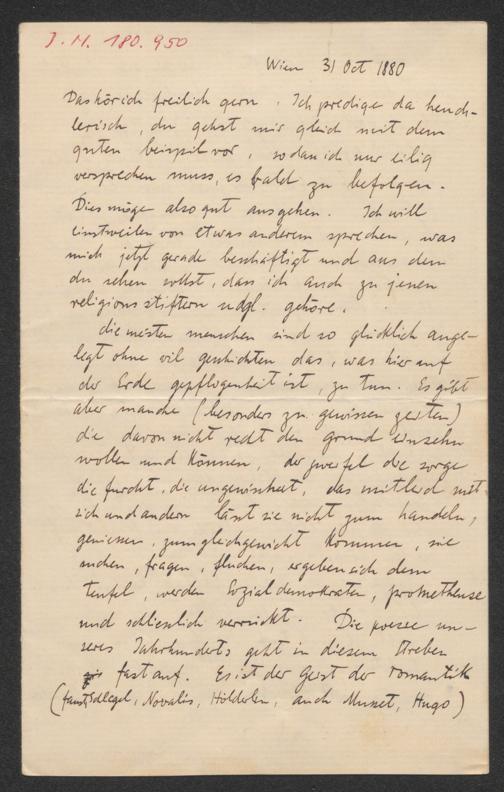 J. N. 180.950
Wien 31 Oct 1880
Das hör ich freilich gern. Ich predige da heuch-
lerisch, du gehst mir gleich mit dem
guten beispil vor, sodan ich nur eilig
versprechen muss, es bald zu befolgen.
Dies möge also gut ausgehen. Ich will
einstweilen von etwas anderem sprechen, was
mich jetzt gerade beschäftigt und aus dem
du sehen sollst, dass ich auch zu jenen
religionsstiftern udgl. gehöre.
die meisten menschen sind so glücklich ange-
legt ohne vil geschichten das, was hier auf
der Erde gepflogenheit ist, zu tun. Es gibt
aber manche (besonders zu gewissen zeiten)
die davon nicht recht den grund einsehn
wollen und können, der zweifel die sorge
die furcht, die ungewissheit, das mitleid mit
sich und andern lässt sie nicht zum handeln,
geniessen, zum gleichgewicht kommen, sie
suchen, fragen, fluchen, ergeben sich dem
teufel, werden Sozialdemokraten, prometheuse
und schliesslich verrückt. Die poesie un-
seres Jahrhunderts geht in diesem Streben
fast auf. Es ist der Geist der romantik
(faust Schlegel, Novalis, Hölderlin, auch Musset, Hugo)